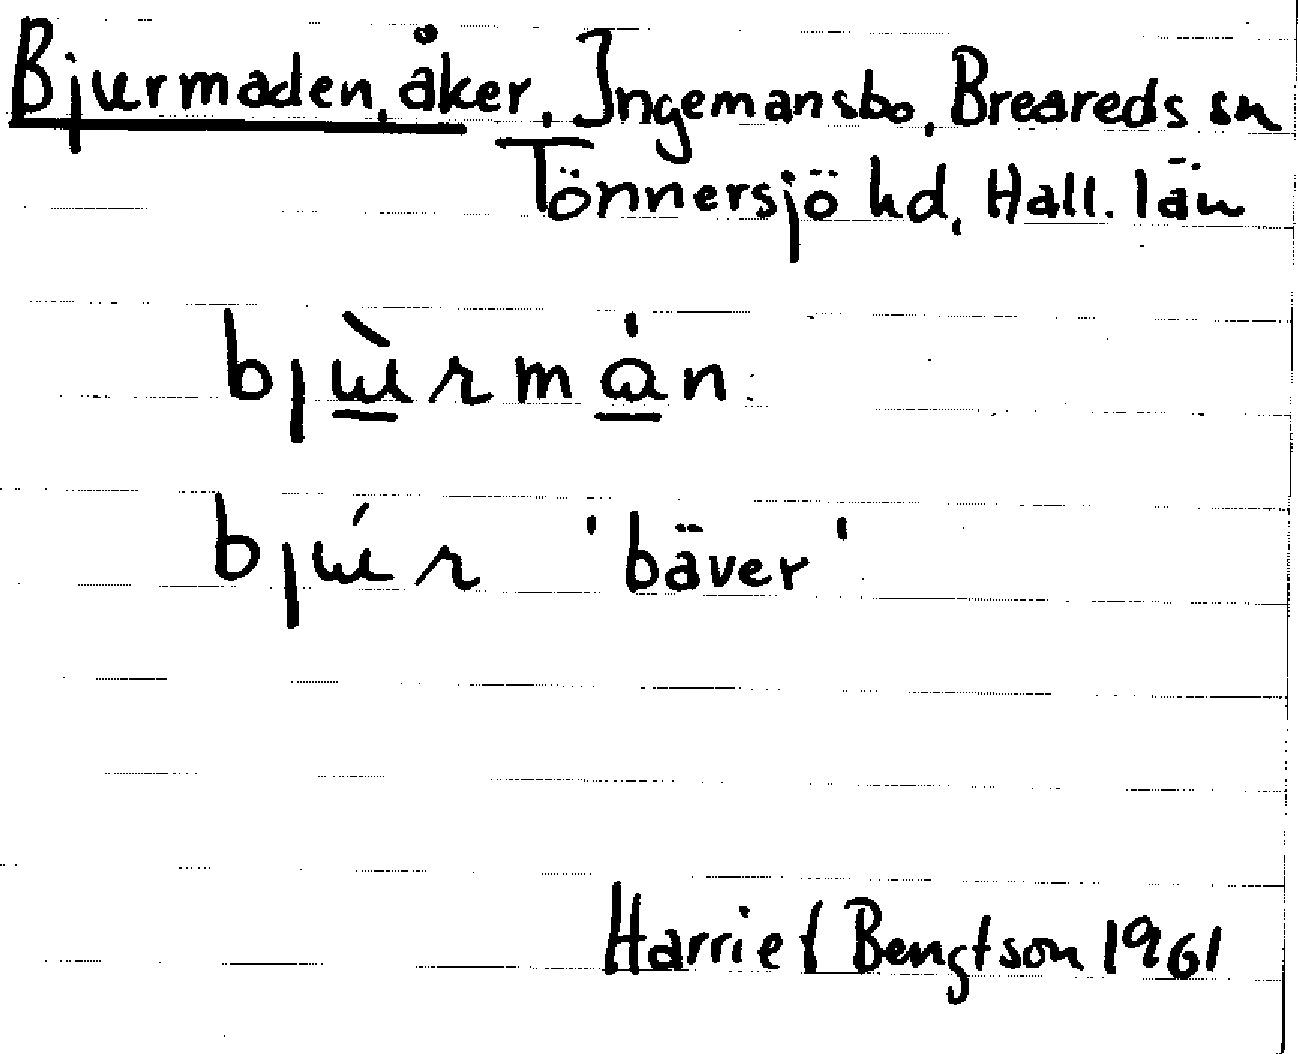 Bjurmaden, åker, Ingemansbo, Breareds sn
Tönnersjö hd, Hall. län
bjɯ̀rmɑ́n
bjɯ́r 'bäver'
Harriet Bengtson 1961